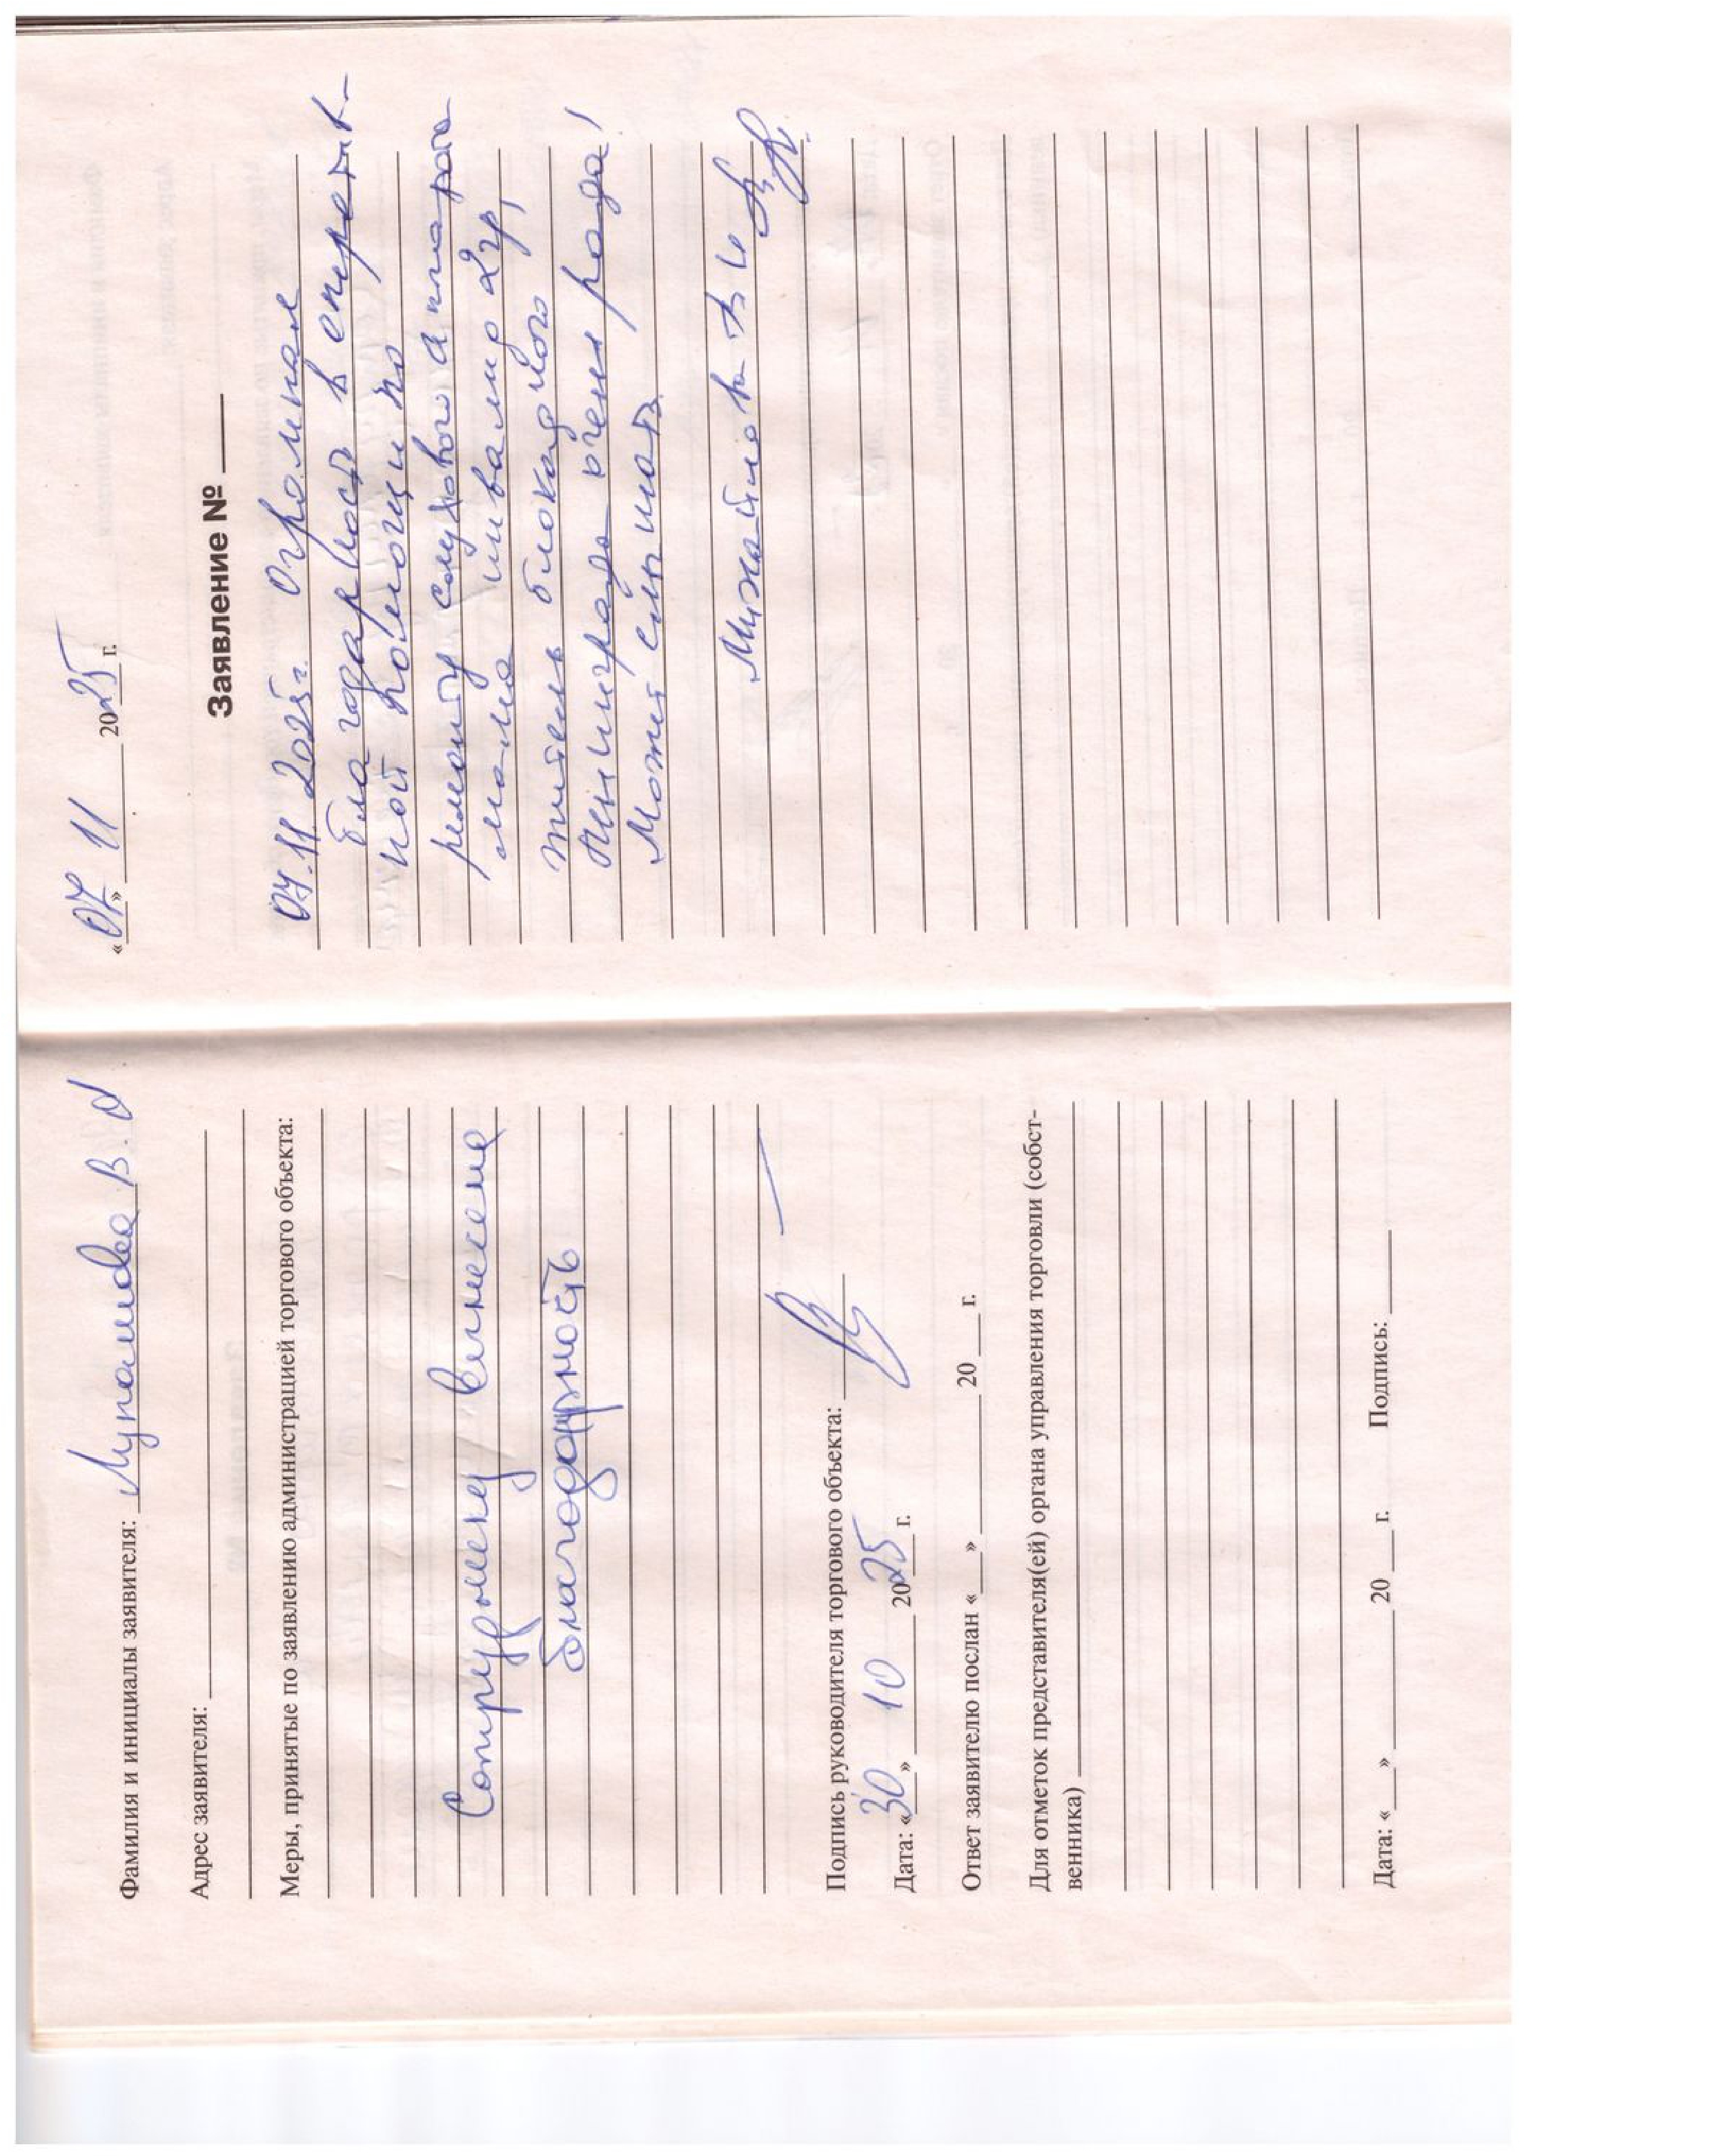 Фамилия и инициалы заявителя: Лупашова В. А
Адрес заявителя:
Меры, принятые по заявлению администрацией торгового объекта:
Сотруднику вынесена
благодарность
Подпись руководителя торгового объекта:
Дата: «30» 10 2025 г.
Ответ заявителю послан «___» ________ 20 ___ г.
Для отметок представителя(ей) органа управления торговли (собст-
венника)
Дата: «___» ________ 20 ___ г. Подпись: ____
«07» 11 2025 г.
Заявление № ____
07.11 2025г. Огромная
благодарность в оператив-
ной помощи по
ремонту слухового аппарата
мама инвалид 2гр,
житель блокадного
Ленинграда очень рада!
Может слышать
Михайлова В И